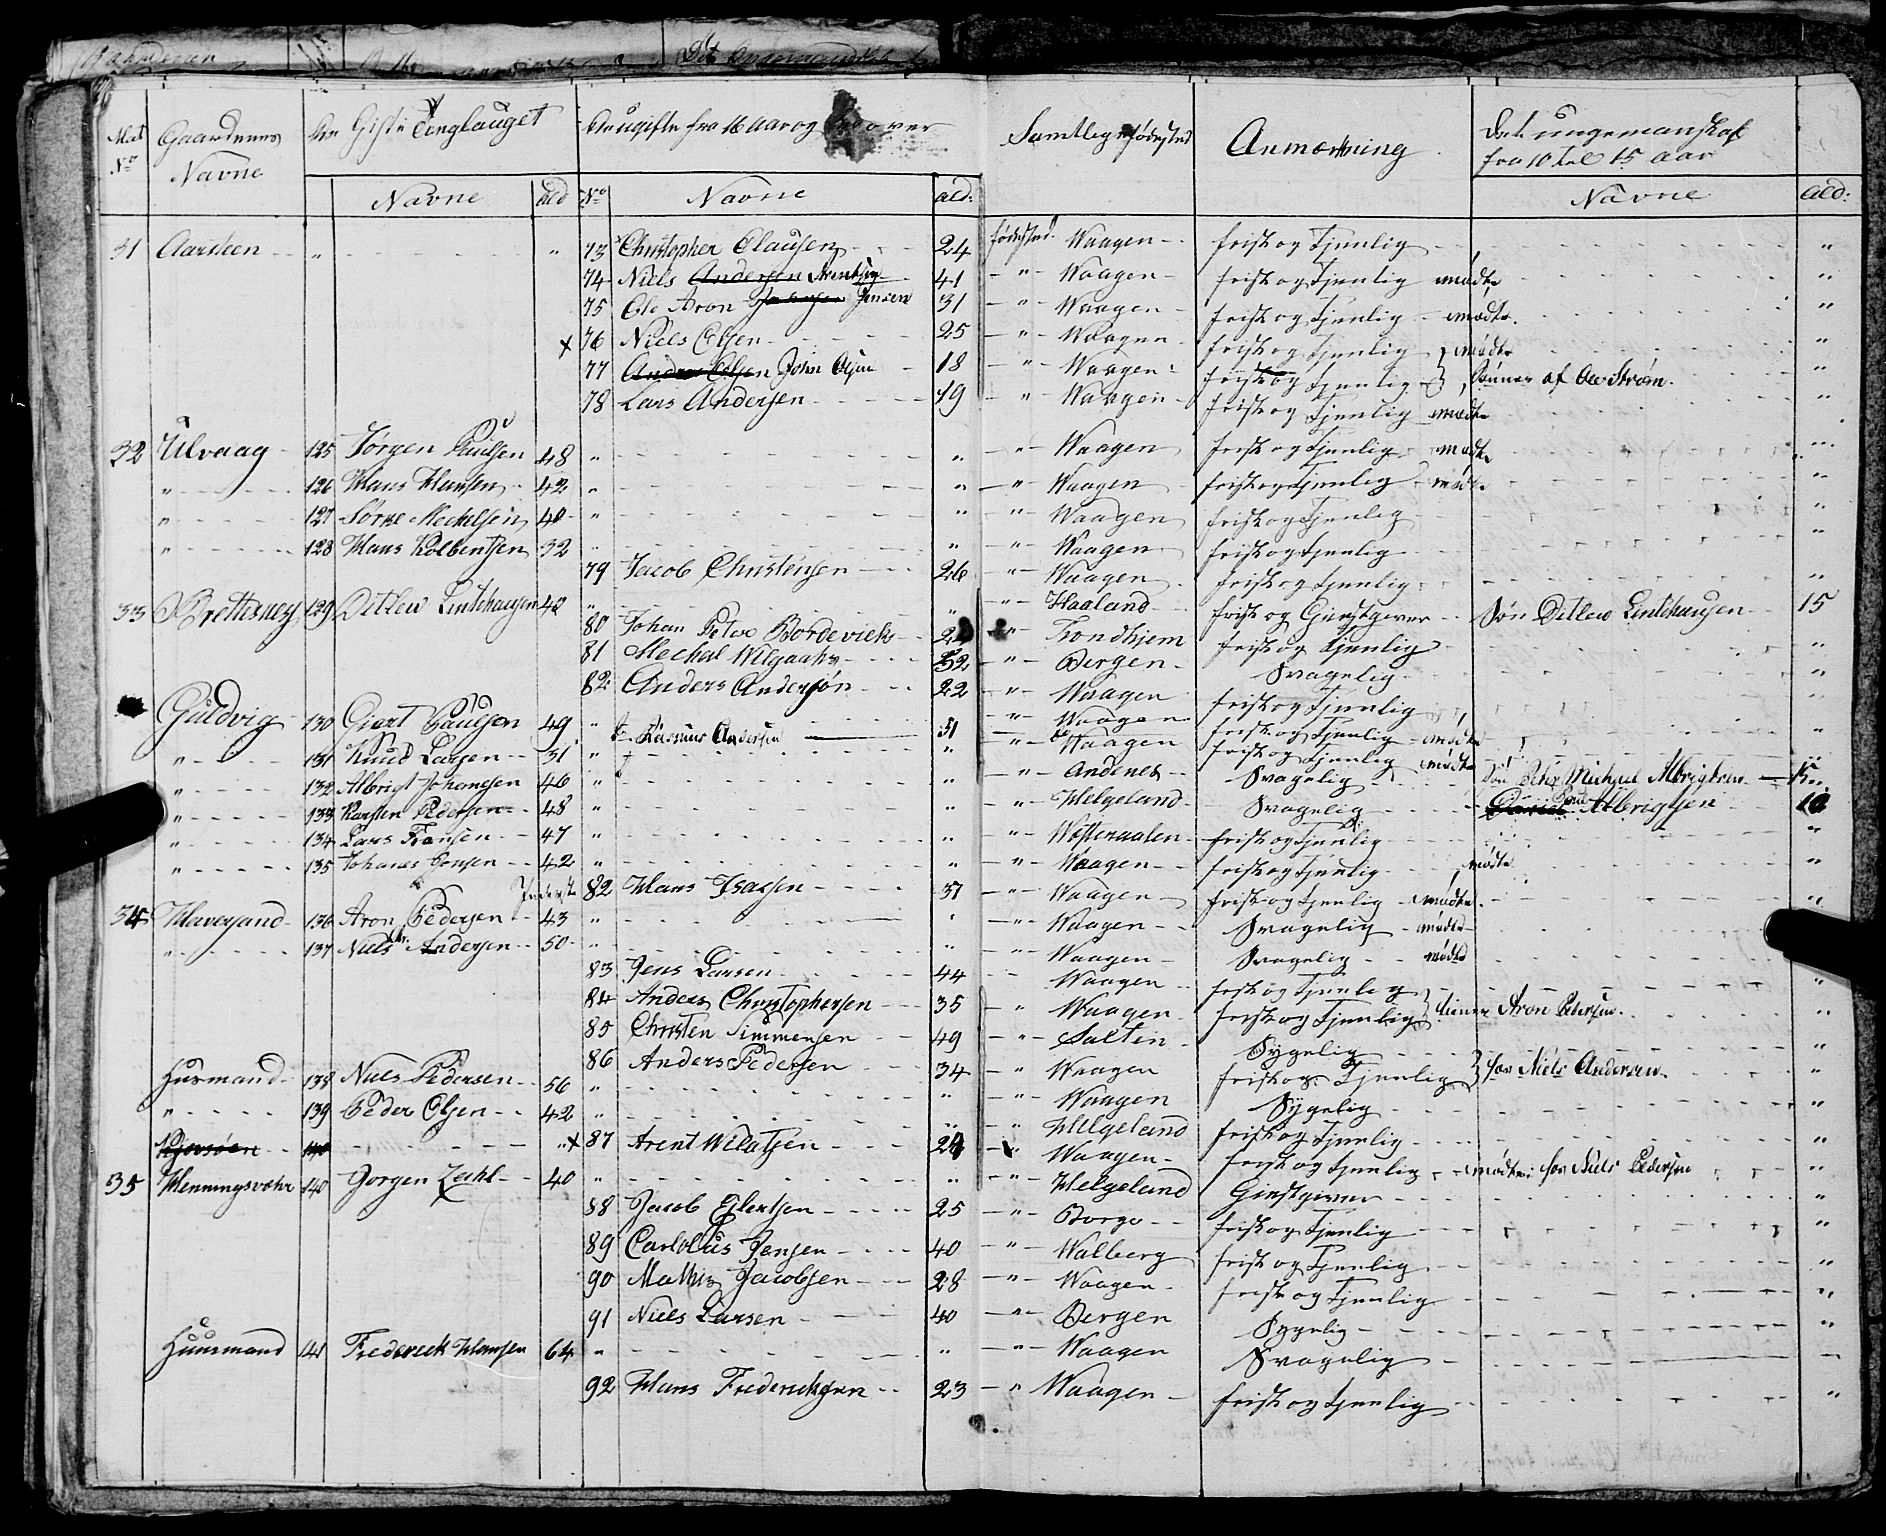 Mat No | Gaardenes Navne | De Gifte i Tinglauget | De ugifte fra 16 Aar og over | Samtliges fødested | Anmærkning | Det unge mandskab fra 10 til 15 aar
Navne | ald | No | Navne | ald: | Navne | ald:
31 Aarsteen " " 73 Christopher Clausen 24 fødested Waagen frisk og Tjenlig "
74 Niels Andersen Arentsen 41 " Waagen frisk og Tjenlig mødte "
75 Ole Aron Johansen Jensen 31 " Waagen frisk og Tjenlig mødte "
x 76 Niels Olsen 25 " Waagen frisk og Tjenlig mødte "
77 Anders Olsen John Olsen 18 " Waagen frisk og Tjenlig Sønner af Ole Strøm. "
78 Lars Andersen 19 " Waagen frisk og Tjenlig mødte "
32 Ulvaag 125 Jørgen Paulsen 48 " " " Waagen frisk og Tjenlig mødte "
" 126 Hans Hansen 42 " " " Waagen frisk og Tjenlig mødt. "
" 127 Sørne Meckelsen 40 " " " Waagen frisk og Tjenlig "
" 128 Hans Kolbentsen 32 " " " Waagen frisk og Tjenlig "
79 Jacob Christensen 26 " Waagen frisk og Tjenlig "
33 Brettesnes 129 Ditlew Lintehausen 42 " " " Haaland frisk og Giestgiver Søn Ditlew Lintehausen 15
80 Johan Peter Bordevick " Trondhjem frisk og Tjenlig "
81 Mechal Wilgaahs 52 " Bergen Svagelig "
82 Anders Andersøn 22 " Waagen frisk og Tjenlig
Guldvig 130 Giert Paulsen 49 " " Waagen frisk og Tjenlig mødte "
Rasmus Andersen 51
" 131 Knud Larsen 31 " " " Waagen frisk og Tjenlig mødte "
" 132 Albrigt Johansen 46 " " " Andenes Svagelig Søn Peter Michael Albrigtsen 15
" 133 Karsten Pedersen 48 " " " Helgeland Svagelig Daniel Albrigtsen 10
" 134 Lars Fransen 47 " " " Westeraalen frisk og Tjenlig "
" 135 Johanes Jensen 42 " " " Waagen frisk og Tjenlig mødte "
82 Hans Isacsen 37 " Waagen frisk og Tjenlig mødte "
34 Haversand 136 Aron Pedersen 43 " " " Waagen Svagelig mødte
" 137 Niels Chr. Andersen 50 " " " Waagen Svagelig mødte
83 Jens Larsen 44 Waagen frisk og Tjenlig "
84 Anders Christophersen 35 " Waagen frisk og Tjenlig tiener Aron Pedersen "
85 Christen Simmensen 49 " Salten Sygelig "
86 Anders Pedersen 34 " Waagen frisk og Tjenlig for Niels Andersen "
Husmand 138 Niels Pedersen 56 " " " Waagen Sygelig "
" 139 Peder Olsen 42 " " " Helgeland frisk og Tjenlig "
140 " x 87 Arent Wilatsen 24 " Waagen frisk og Tjenlig mødte: for Niels Pedersen "
35 Henningsvahr 140 Jorgen Zahl 40 " " " Helgeland Giestgiver "
88 Jacob Ejlertsen 25 " Borge frisk og Tjenlig "
89 Carlolus Jensen 40 " Walberg frisk og Tjenlig "
90 Mathis Jacobsen 28 " Waagen frisk og Tjenlig "
91 Niels Larsen 40 " Bergen Sygelig "
Huusmand 141 Frederick Hansen 64 " " " Waagen Svagelig
92 Hans Frederichsen 23 " Waagen frisk og Tjenlig "